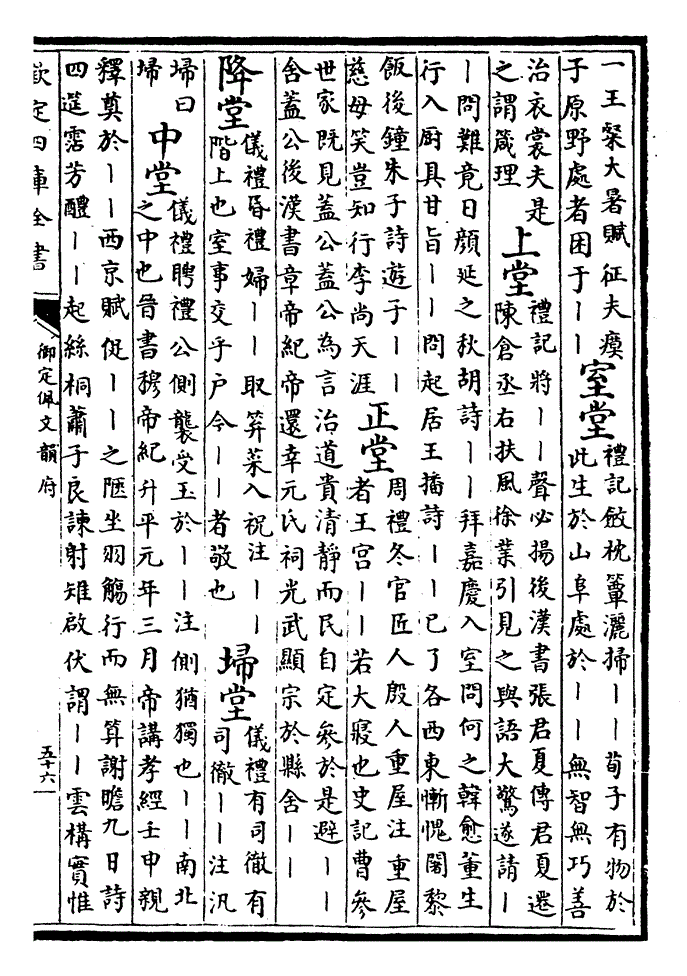 一王粲大暑賦征夫瘼
子原野處者困于｜｜
室堂
禮記斂枕簟灑掃｜｜荀子有物於
此生於山阜處於｜｜無智無巧善
治衣裳夫是
之謂箴理
上堂
禮記將｜｜聲必揚後漢書張君夏傳君夏遷
陳倉丞右扶風徐業引見之與語大驚遂請｜
｜問難竟日顏延之秋胡詩｜｜拜嘉慶入室問何之韓愈董生
行入厨具甘旨｜｜問起居王播詩｜｜已了各西東慚愧闍黎
飯後鐘朱子詩遊子｜｜
慈母笑豈知行李尚天涯
正堂
周禮冬官匠人殷人重屋注重屋
者王宫｜｜若大寢也史記曹參
世家既見蓋公蓋公為言治道貴清静而民自定參於是避｜｜
舍蓋公後漢書章帝紀帝還幸元氏祠光武顯宗於縣舍｜｜
降堂
儀禮昏禮婦｜｜取笲菜入祝注｜｜
階上也室事交乎户今｜｜者敬也
埽堂
儀禮有司徹有
司徹｜｜注汎
埽曰
埽
中堂
儀禮聘禮公側襲受玉於｜｜注側猶獨也｜｜南北
之中也晉書穆帝紀升平元年三月帝講孝經壬申親
釋奠於｜｜西京賦促｜｜之陿坐羽觴行而無算謝瞻九日詩
四筵霑芳醴｜｜起絲桐蕭子良諫射雉啟伏謂｜｜雲構實惟
欽定四庫全書
御定佩文韻府
五十六